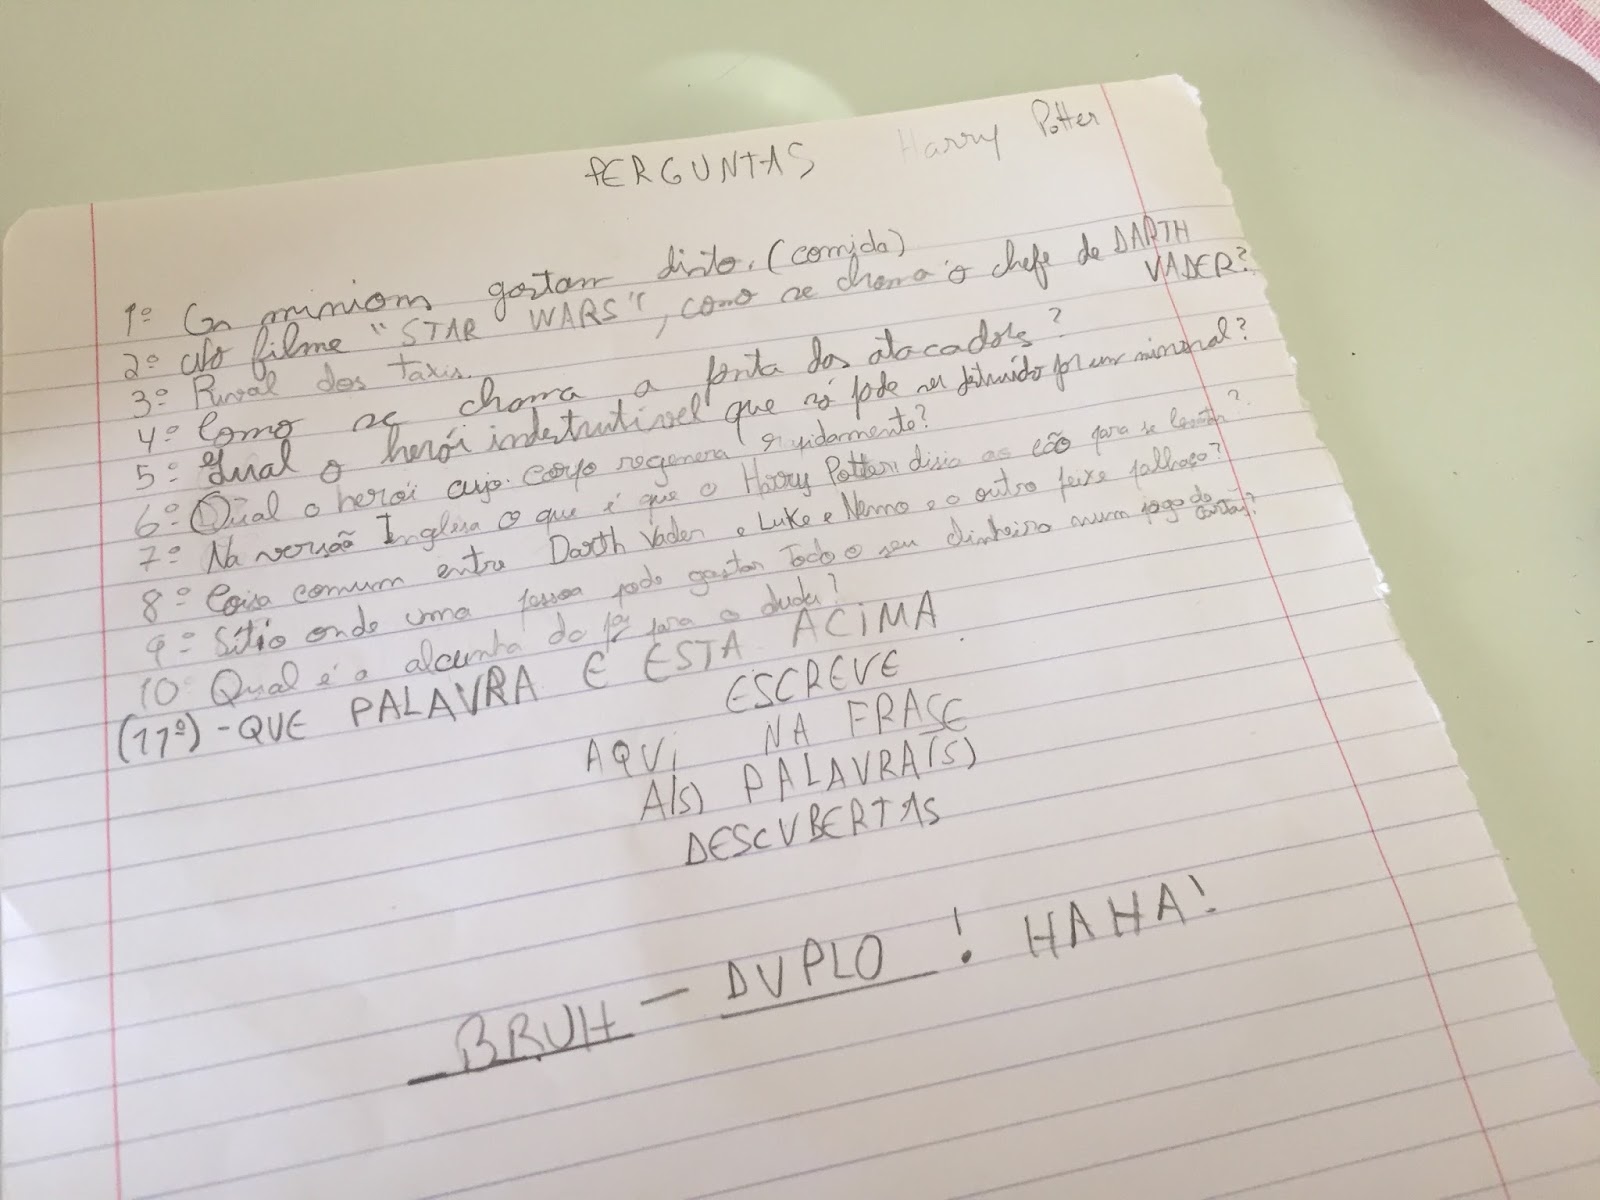 PERGUNTAS Harry Potter
1º Os minions gostam disto. (comida)
2º No filme "STAR WARS", como se chama o chefe de DARTH VADER?
3º Rival dos taxis.
4º Como se chama a ponta dos atacadores?
5º Qual o herói indestrutível que só pode ser destruído por um mineral?
6º Qual o herói cujo corpo regenera rapidamente?
7º Na versão Inglesa o que é que o Harry Potter disia ao cão para se
8º Coisa comum entre Darth Vader e Luke e Nemo e o outro peixe palhaço?
9º Sítio onde uma pessoa pode gastar todo o seu dinheiro num jogo de cartas?
10º Qual é a alcunha do para o duda?
(11º) - QUE PALAVRA É ESTA ACIMA
ESCREVE
AQUI NA FRASE
A(S) PALAVRA(S)
DESCUBERTAS
BRUH - DUPLO ! HAHA!